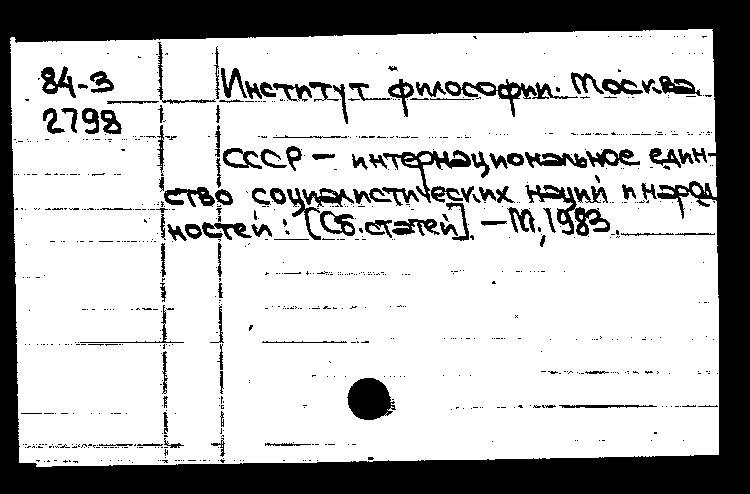 84-3
2798
Институт философии. Москва.
СССР — интернациональное един-
ство социалистических наций и народ
ностей: [Сб. статей]. — М., 1983.